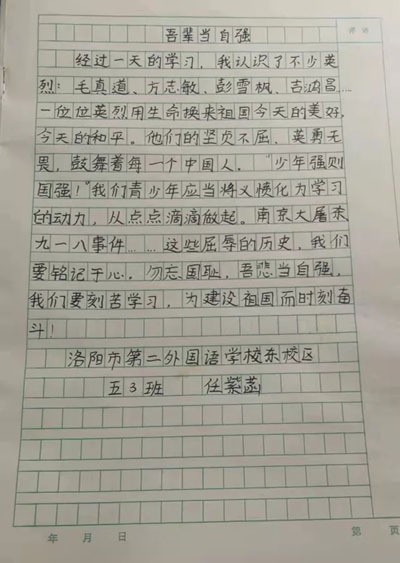 吾辈当自强
经过一天的学习，我认识了不少英
烈：毛真道、方志敏、彭雪枫、吉鸿昌……
一位位英烈用生命换来祖国今天的美好，
今天的和平。他们的坚贞不屈、英勇无
畏，鼓舞着每一个中国人。“少年强则
国强！”我们青少年应当将义愤化为学习
的动力，从点点滴滴做起。南京大屠杀
九一八事件……这些屈辱的历史，我们
要铭记于心。勿忘国耻，吾悲当自强，
我们要刻苦学习，为建设祖国而时刻奋
斗！
洛阳市第二外国语学校东校区
五3班 任紫菡
年 月 日 第 页